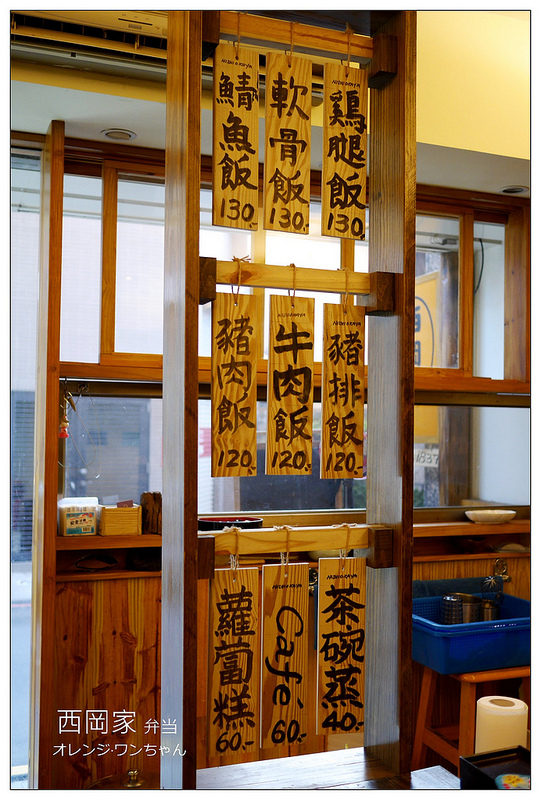 NISHIOKAYA
鯖魚飯
130.
軟骨飯
130.
NISHIOKAYA
鶏腿飯
130.
豬肉飯
120.
NISHIOKAYA
牛肉飯
120.-
NISHIOKAYA
豬排飯
120.-
NISHIOKAYA
蘿蔔糕
60.-
NISHIOKAYA
Café
60.-
NISHIOKAYA
茶碗蒸
40.-
西岡家 弁当
オレンジ·ワンちゃん